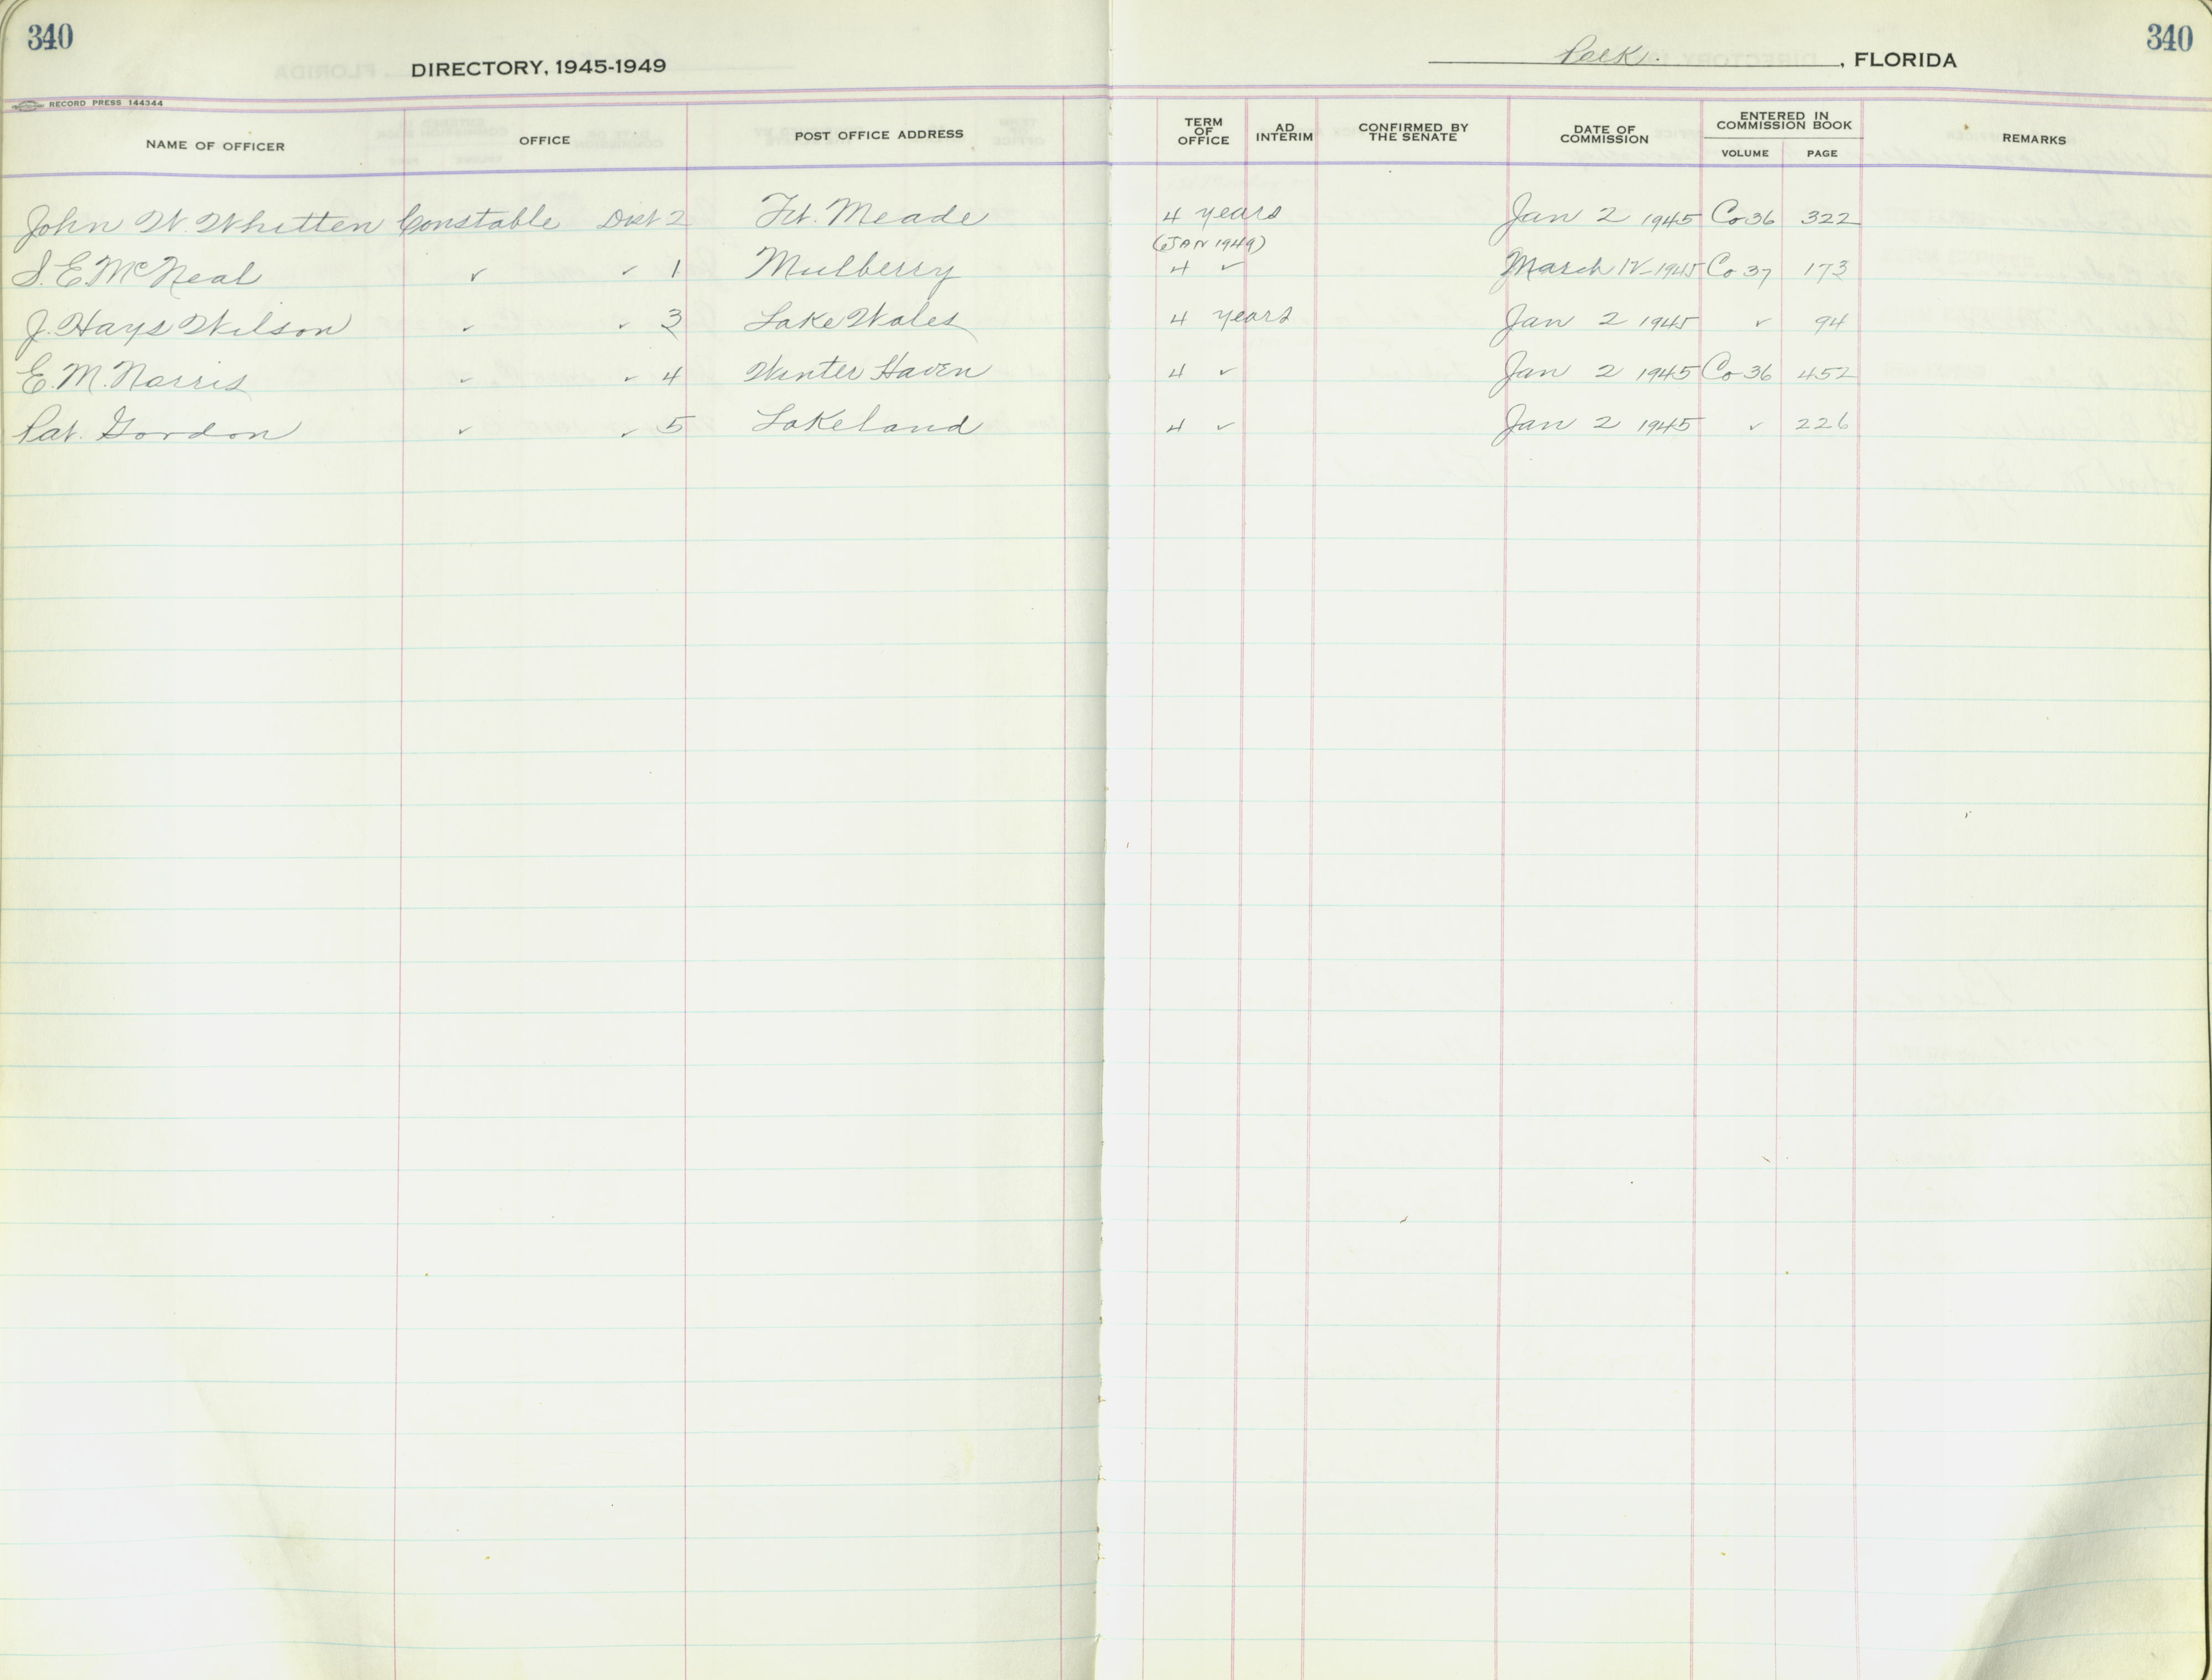 340
340
DIRECTORY, 1945-1949
Polk. , FLORIDA
RECORD PRESS 144344
NAME OF OFFICER OFFICE POST OFFICE ADDRESS TERM OF OFFICE AD INTERIM CONFIRMED BY THE SENATE DATE OF COMMISSION ENTERED IN COMMISSION BOOK VOLUME PAGE REMARKS
John W. Whitten Constable Dist 2 Ft. Meade 4 years Jan 2 1945 Co 36 322
(JAN 1949)
S. E. McNeal " " 1 Mulberry 4 " March 12-1945 Co 37 173
J. Hays Wilson " " 3 Lake Wales 4 years Jan 2 1945 " 94
E. M. Norris " " 4 Winter Haven 4 " Jan 2 1945 Co 36 452
Pat. Gordon " " 5 Lakeland 4 " Jan 2 1945 " 226